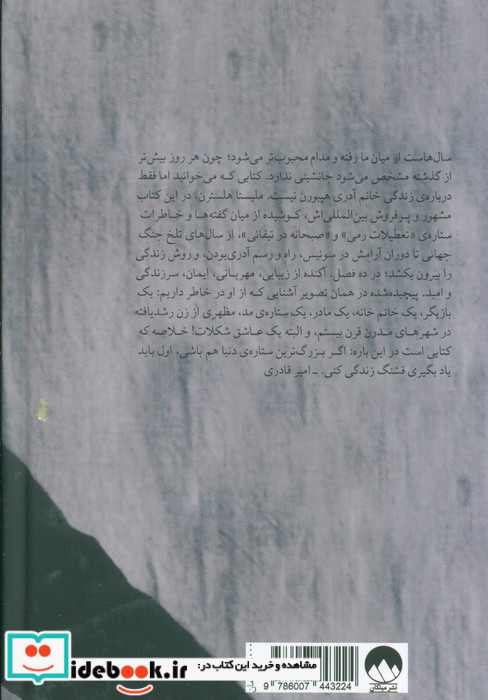 سال‌هاست از میان ما رفته و مدام محبوب‌تر می‌شود؛ چون هر روز بیش‌تر
از گذشته مشخص می‌شود جانشینی ندارد. کتابی که می‌خوانید اما فقط
درباره‌ی زندگی خانم آدری هپبورن نیست. ملیسا هلسترن، در این کتاب
مشهور و پرفروش بین‌المللی‌اش، کوشیده از میان گفته‌ها و خاطرات
ستاره‌ی «تعطیلات رمی» و «صبحانه در تیفانی»، از سال‌های تلخ جنگ
جهانی تا دوران آرامش در سوئیس، راه و رسم آدری‌بودن، و روش زندگی
را بیرون بکشد؛ در ده فصل. آکنده از زیبایی، مهربانی، ایمان، سرزندگی
و امید. پیچیده‌شده در همان تصویر آشنایی که از او در خاطر داریم: یک
بازیگر، یک خانم خانه، یک مادر، یک ستاره‌ی مد، مظهری از زن رشدیافته
در شهرهای مدرن قرن بیستم، و البته یک عاشق شکلات! خلاصه که
کتابی است در این باره: اگر بزرگ‌ترین ستاره‌ی دنیا هم باشی، اول باید
یاد بگیری قشنگ زندگی کنی. ـ امیر قادری
idebook.ir
مشاهده و خرید این کتاب در:
9 786007 443224
نشر میلکان